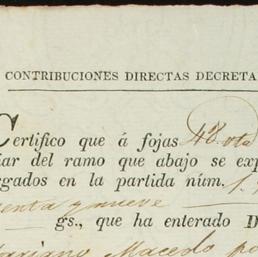 CONTRIBUCIONES DIRECTAS DECRETA
Certifico que á fojas 48 vta
iar del ramo que abajo se exp
rgados en la partida núm. 1.
enta y nueve
gs., que ha enterado D
Mariano Macedo po